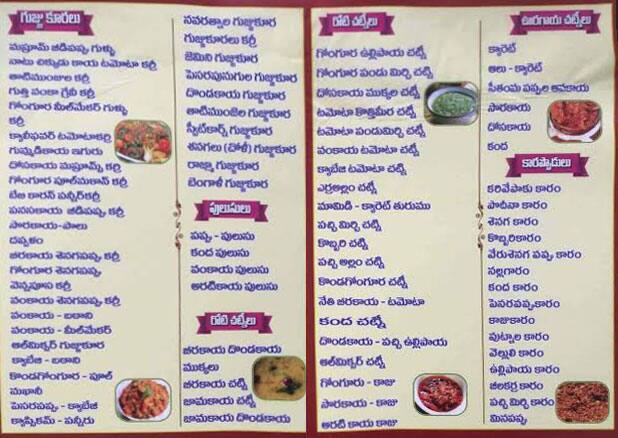 గుజ్జు కూరలు
మష్రూమ్ జీడిపప్పు గుళ్ళు
నాటు చిక్కుడు కాయ టమోటా కర్రీ
తాటిముంజల కర్రీ
గుత్తి వంకా గ్రేవీ కర్రీ
గోంగూర మీల్‌మేకర్ గుళ్ళు
కర్రీ
క్యాలీఫవర్ టమోటాకర్రి
గుమ్మడికాయ ఇగురు
దోసకాయ మష్రూమ్స్ కర్రీ
గోంగూర పూల్‌మకాన్ కర్రీ
బేబి కారన్ పన్నీర్‌కర్రీ
పనసకాయ జీడిపప్పు కర్రీ
సొరకాయ-పాలు
దప్పళం
బీరకాయ శెనగపప్పు కర్రీ
గోంగూర శెనగపప్పు
వెన్నపూస కర్రీ
వంకాయ శెనగపప్పు కర్రీ
వంకాయ - బఠాని
వంకాయ - మీల్‌మేకర్
ఆల్‌మిక్చర్ గుజ్జుకూర
క్యాబేజి - బఠాని
కొండగోంగూర - పూల్
మఖానీ
పెసరపప్పు - క్యాబేజీ
క్యాప్సికమ్ - పన్నీరు
నవరత్నాల గుజ్జుకూర
గుజ్జుకూరలు కర్రీ
జెమిని గుజ్జుకూర
పెసరపునుగుల గుజ్జుకూర
దొండకాయ గుజ్జుకూర
తాటిముంజల గుజ్జుకూర
స్వీట్‌కార్న్ గుజ్జుకూర
శనగలు (చోలే) గుజ్జుకూర
రాజ్మా గుజ్జుకూర
బెంగాళీ గుజ్జుకూర
పులుసులు
పప్పు - పులుసు
కంద పులుసు
వంకాయ పులుసు
అరటికాయ పులుసు
రోటి చట్నీలు
బీరకాయ దొండకాయ
ముక్కలు
బీరకాయ చట్నీ
జామకాయ చట్నీ
జామకాయ దొండకాయ
రోటి చట్నీలు
గోంగూర ఉల్లిపాయ చట్నీ
గోంగూర పండు మిర్చి చట్నీ
దోసకాయ ముక్కల చట్నీ
టమోటా కొత్తిమీర చట్నీ
టమోటా పండుమిర్చి చట్నీ
వంకాయ టమోటా చట్నీ
క్యాబేజి టమోటా చట్నీ
ఎర్రఅల్లం చట్నీ
మామిడి - క్యారెట్ తురుము
పచ్చి మిర్చి చట్నీ
కొబ్బరి చట్నీ
పచ్చి అల్లం చట్నీ
కొండగోంగూర చట్నీ
నేతి బీరకాయ - టమోటా
కంద చట్నీ
దొండకాయ - పచ్చి ఉల్లిపాయ
ఆల్‌మిక్చర్ చట్నీ
గోంగూరు - కాజు
సొరకాయ - కాజు
అరటి కాయ కాజు
ఊరగాయ చట్నీలు
క్యారెట్
ఆలు - క్యారెట్
సీతమ్మ పప్పుల ఆవకాయ
సొరకాయ
దోసకాయ
కంద
కారప్పొడులు
కరివేపాకు కారం
పొదీనా కారం
శెనగ కారం
కొబ్బరికారం
వేరుశెనగ పప్పు కారం
నల్లగారం
కంద కారం
పెసరపప్పుకారం
కాజుకారం
పుట్నాల కారం
వెల్లుల్లి కారం
ఉల్లిపాయ కారం
జీలకర్ర కారం
పచ్చి మిర్చి కారం
మినపప్పు